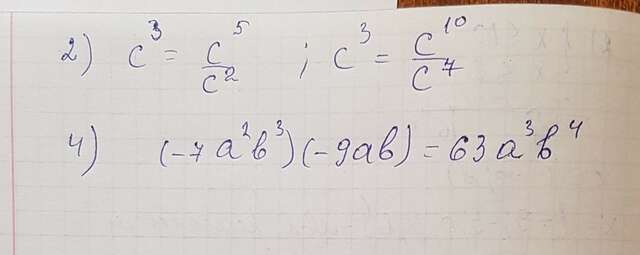 2) c³ = c⁵/c² ; c³ = c¹⁰/c⁷
4) (-7a²b³)(-9ab) = 63a³b⁴